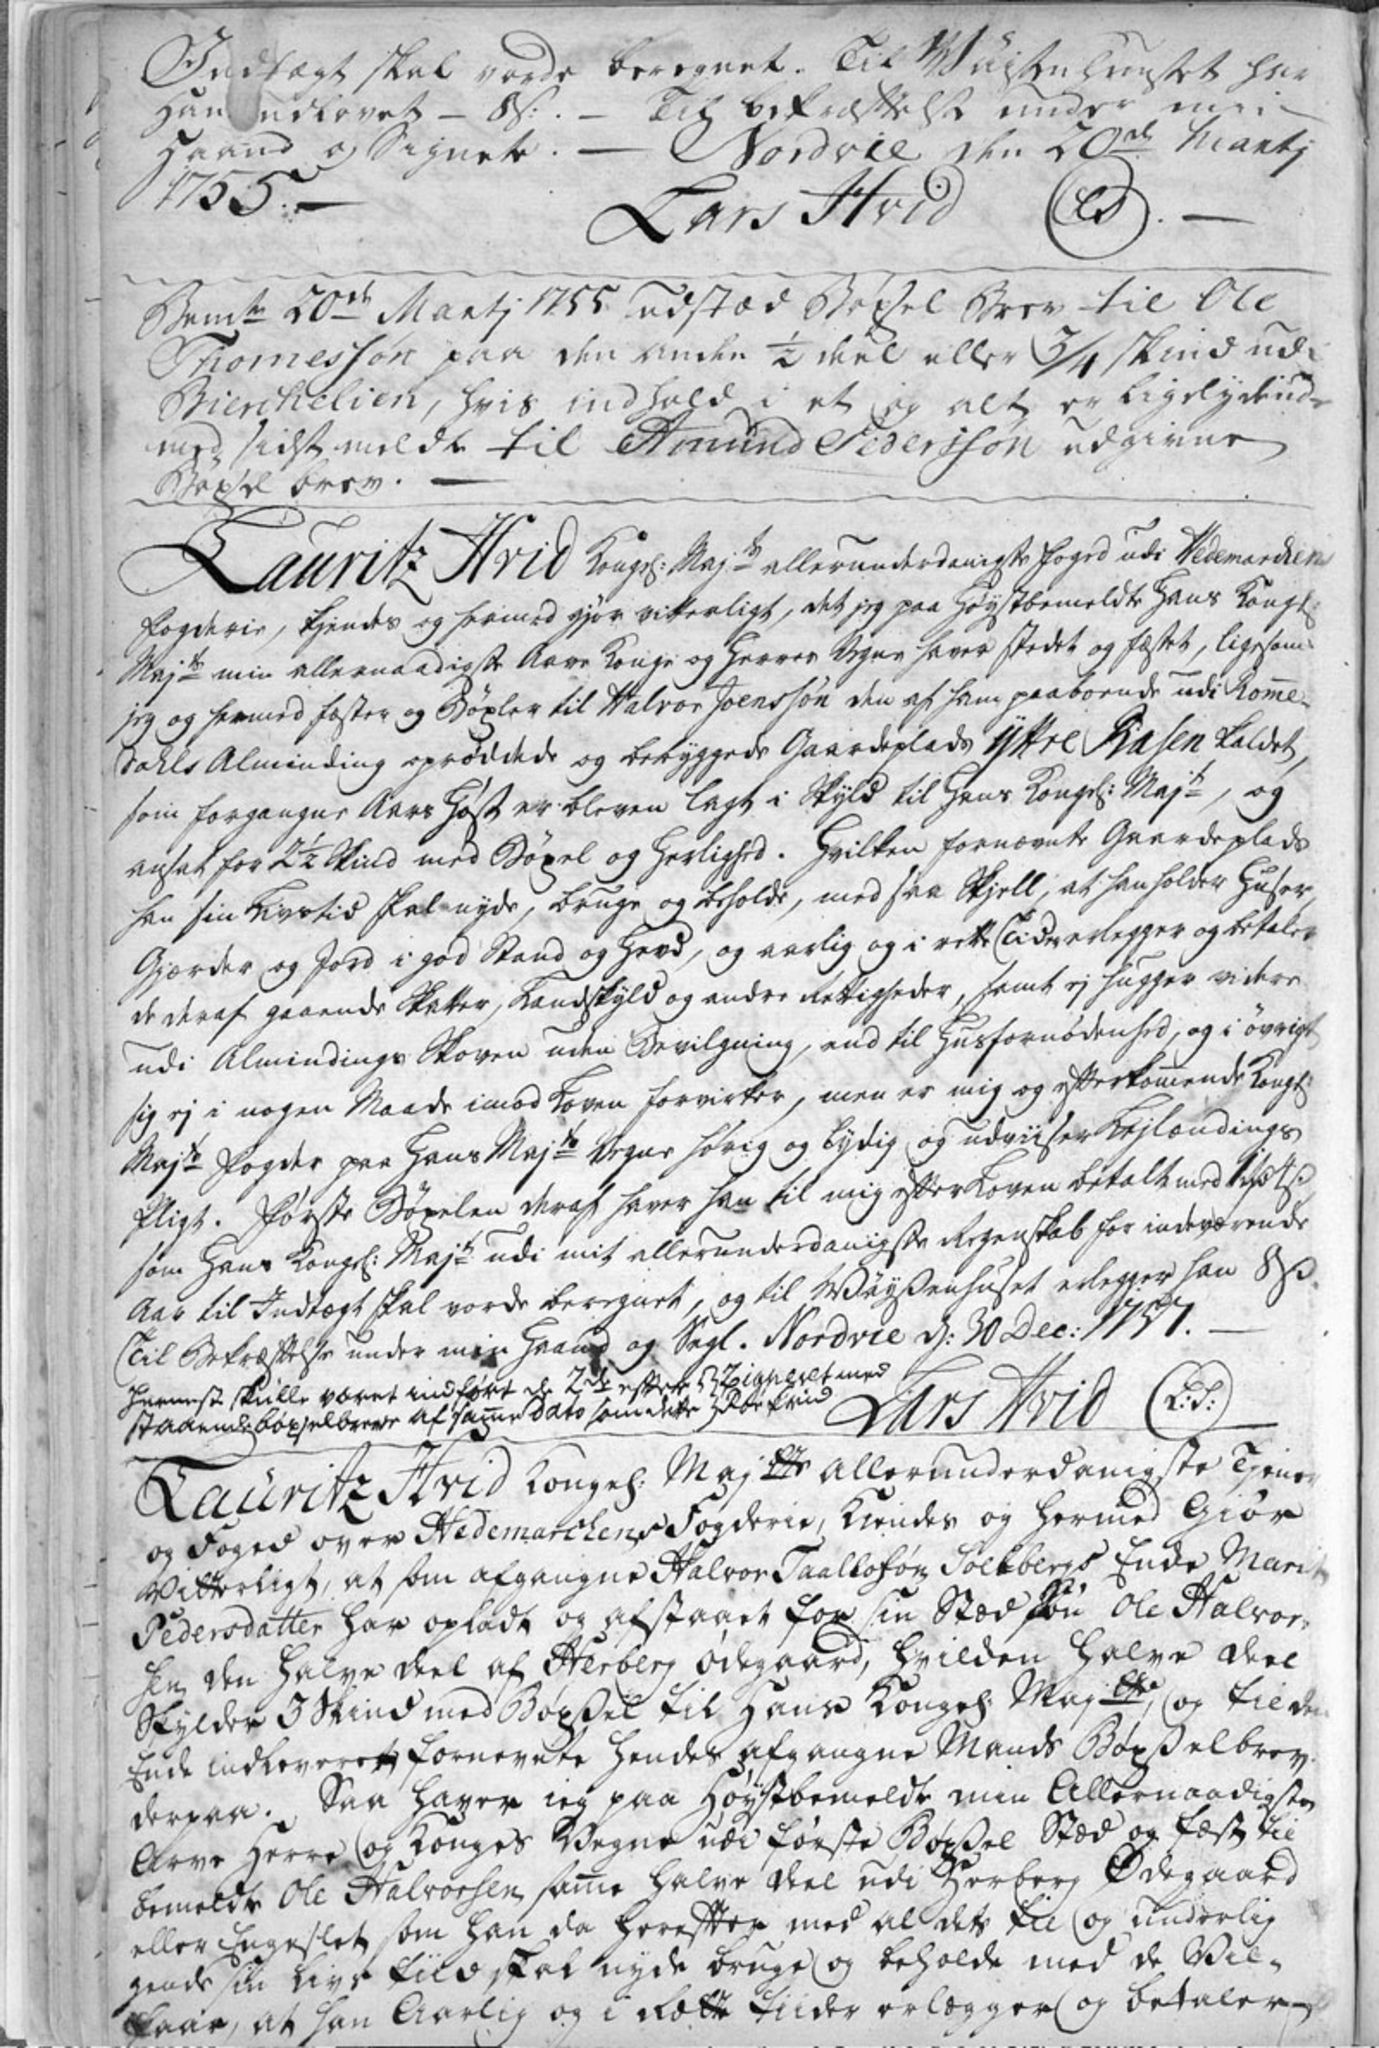 Indtægt skal vorde beregnet. Til Wäisenhuuset har
Han indlovet – 8 s: . – Til bekræftelse under min
Haand og Signete. — Nordvie den 20de Martj
1755. —
Lars Hvid (LS). —
Bemte 20de Martj 1755 udstæd Bøxel Brev til Ole
Thomessøn paa den anden ½ deel eller 3/4 skind udi
Bierchelien, hvis indhold i et og alt er ligelydende
med sidst meldte til Amund Pedersøn udgivne
Bøxel brev. —
Lauritz Hvid Kongel: Majts allerunderdanigste foged udi Hedemarchens
fogderie, kjendes og hermed gjør vitterligt, det jeg paa høystbemeldte Hans Kongl:
Majts min allernaadigste Arve Konge og Herres Vegne haver stedet og fæstet, ligesom
jeg og hermed fæster og Bøxler til Halvor Joenssøn den af ham paaboende udi Romme-
dahls Alminding oprøddede og bebyggede Gaardeplads Yttre Kiasen kaldet,
som forgangne Aars Høst er bleven lagt i Skyld til Hans Kongel: Majt, og
ansat for 2½ Skind med Bøxel og Herlighed. Hvilken fornævnte Gaardeplads
han sin Livstid skal nyde, bruge og beholde, med saa Skjell, at han holder Huser,
Gjærder og Jord i god Stand og Hevd, og aarlig og i rette Tider erlegger og betaler
de deraf gaaende Skatter, Landskyld og andre Rettigheder, samt ej hugger videre
udi Almindings Skoven uden Bevilgning, end til Husfornødenhed, og i øvrigt
sig ej i nogen Maade imod Loven forvirker, men er mig og efterkommende Kongl:
Majts fogder paa Hans Majts Vegne hørig og lydig og udviiser Lejlændings
Pligt. Første Bøxelen deraf haver han til mig efter Loven betalt med
som Hans Kongel: Majt udi mit allerunderdanigste Regenskab for indeværende
Aar til Indtægt skal vorde beregnet, og til Wäyßenhuset erlegger han 8 s.
Til Bekræftelse under min Haand og Segl. Nordvie d: 30 Dec: 1757. —
Hernest skulle været indført de 2de efter
staaende bøxselbreve af samme Dato som dette
Lars Hvid (L:S:)
Lauritz Hvid Kongel: Majtts Allerunderdanigste Tjener
og Foged over Hedemarchens Fogderie, Kiendes og hermed Giør
Vitterligt, at som afgangne Halvor Taallofsøn Solbergs Enke Marit
Pedersdatter har opladt og afstaaet for sin Stæd søn Ole Halvor-
sen, den halve deel af Herberg Ødegaard, hvilken halve deel
Skylder 3 Skind med Bøxßel til Hans Kongel: Majtts, og til den
Ende indleveret fornevnte hendes afgangne Mands Bøxßelbrev
derpaa. Saa haver ieg paa Høystbemeldte min Allernaadigste
Arve Herre og Konges Vegne udi første Bøxßel Stæd og fæst til
bemeldte Ole Halvorsen, samme halve deel udi Herberg Ødegaard
eller Engeslet, som han da herefter med al dets til og underlig
gende sin Livs tiid skal nyde bruge og beholde med de Vil-
kaar, at han Aarlig og i Rætte tiider erlægger og betaler